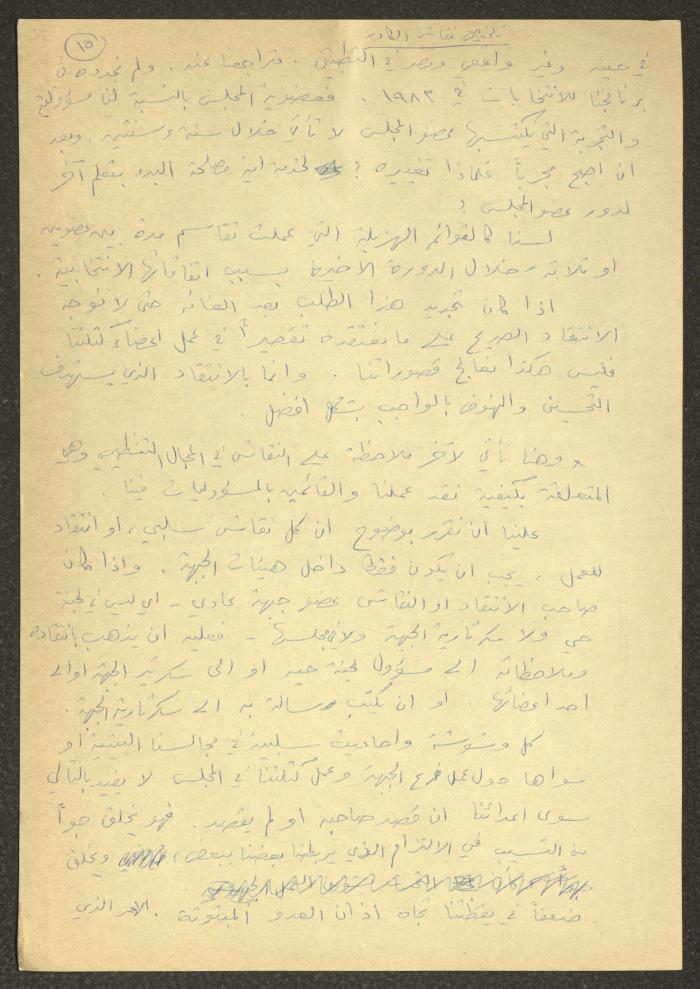 تلخيص نقاش الكادر
١٥
في حينه وغير واقعي ومضر في التطبيق . فتراجعنا عنه . ولم نحدده في
برنامجنا للانتخابات في ١٩٨٣ . فعضوية المجلس بالنسبة لنا مسؤولية
والتجربة التي يكتسبها عضو المجلس لا تأتي خلال سنة وسنتين . وبعد
ان اصبح مجرباً فلماذا تغييره ؟ لخدمة اية مصلحة البدء بتعلم آخر
لدور عضو المجلس ؟
لسنا كالقوائم الهزيلة التي عملت تقاسم مدة بين عضوين
او ثلاثة خلال الدورة الاخيرة بسبب اتفاقاتها الانتخابية .
اذا كان تجديد هذا الطلب بعد الغائه حتى لا نوجه
الانتقاد الصريح على ما نعتقده تقصيراً في عمل اعضاء كتلتنا
فليس هكذا نعالج قصوراتنا . وانما بالانتقاد الذي يستهدف
التحسين والنهوض بالواجب بشكل افضل .
وهنا نأتي لآخر ملاحظة على النقاش في المجال التنظيمي وهي
المتعلقة بكيفية نقد عملنا والقائمين بالمسؤوليات فينا .
علينا ان نقرر بوضوح ان كل نقاش سلبي ، او انتقاد
للعمل ، يجب ان يكون فقط داخل هيئات الجبهة . واذا كان
صاحب الانتقاد او النقاش عضو جبهة عادي - اي ليس في لجنة
حي ولا سكرتارية الجبهة ولا في مجلسها - فعليه ان يذهب بانتقاده
وملاحظاته الى مسؤول لجنة حيه او الى سكرتير الجبهة او الى
احد اعضائها . او ان يكتب رسالة به الى سكرتارية الجبهة .
كل وشوشة واحاديث سلبية في مجالسنا البيتية او
سواها حول عمل فرع الجبهة وعمل كتلتنا في المجلس لا يفيد بالتالي
سوى اعدائنا ان قصد صاحبه او لم يقصد . فهو يخلق جواً
من التسيب في الالتزام الذي يربطنا بعضنا ببعض ، ويخلق
ضعفاً في يقظتنا تجاه اذان العدو المبثوثة . الامر الذي